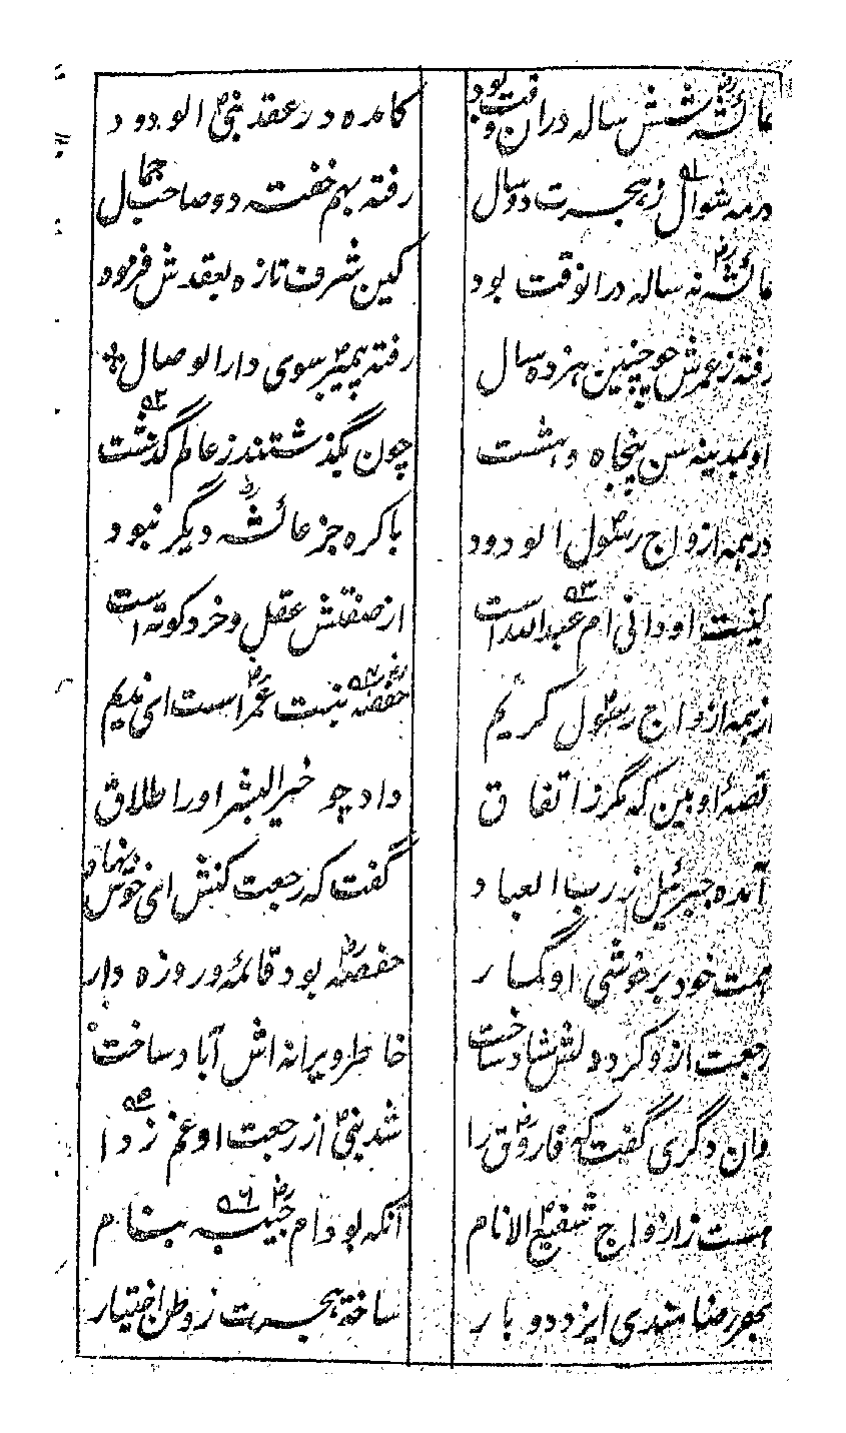 عائشهؓ شش ساله دران وقت بود کامده در عقد نبیؐ الودود
درمه شوال ۵۱ ز هجرت دو سال رفته بهم خفته دو صاحب جمال
عائشهؓ نه ساله درانوقت بود کین شرف تازه بعقدش فرمود
رفته ز عمرش چو چنین هژده سال رفته پیمبرؐ سوی دارالوصال
او بمدینه سن پنجاه و هشت چون بگذشتند ز عالم گذشت ۵۲
در همه ازواج رسولؐ الودود باکره جز عائشهؓ دیگر نبود
کنیت او دانی ام عبدالله است ۵۳ از صفتش عقل و خرد کوته است
از همه ازواج رسولؐ کریم حفصهؓ ۵۴ بنت عمرؓ است ای ندیم
قصهٔ او بین که مگر ز اتفاق داد چو خیرالبشر اورا طلاق
آمده جبرئیل ز رب العباد گفت که رجعت کنش ای خوش نهاد
همت خود بر خوشی او گمار حفصهؓ بود قائمه و روزه دار
رجعت ازو کرد و دلش شاد ساخت خاطر ویرانه اش آباد ساخت
وان دگری گفت که فاروقؓ را شد نبیؐ از رجعت او غم زدا ۵۵
هست ز ازواج شفیعؐ الانام آنکه بود ام حبیبهؓ ۵۶ بنام
بهر رضامندی ایزد دو بار ساخته هجرت ز وطن اختیار